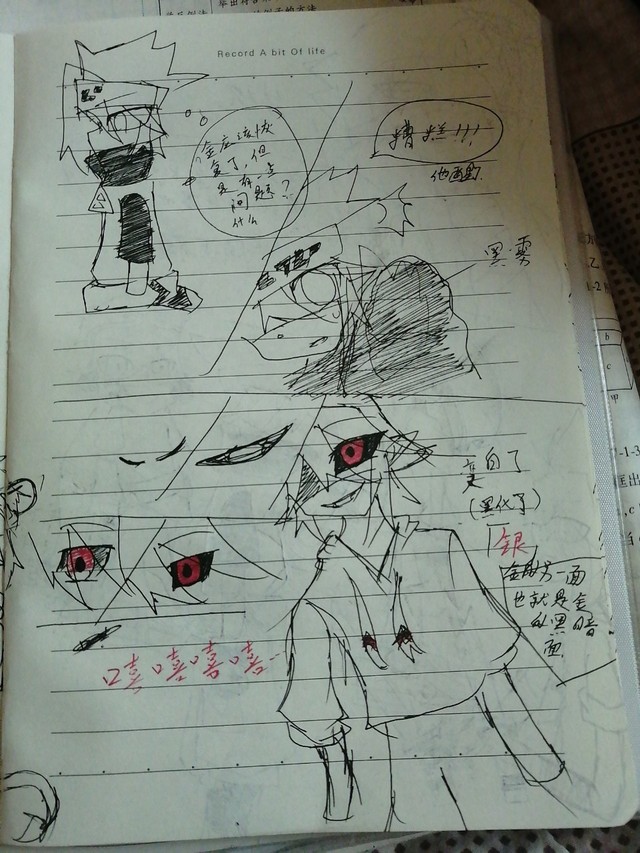 Record A bit Of life
金应该恢
复了，但
是有一点
问题？
什么
糟烂!!!
黑雾
变白了
(黑化了)
银
金的另一面
也就是金
的黑暗
面
嘻嘻嘻嘻